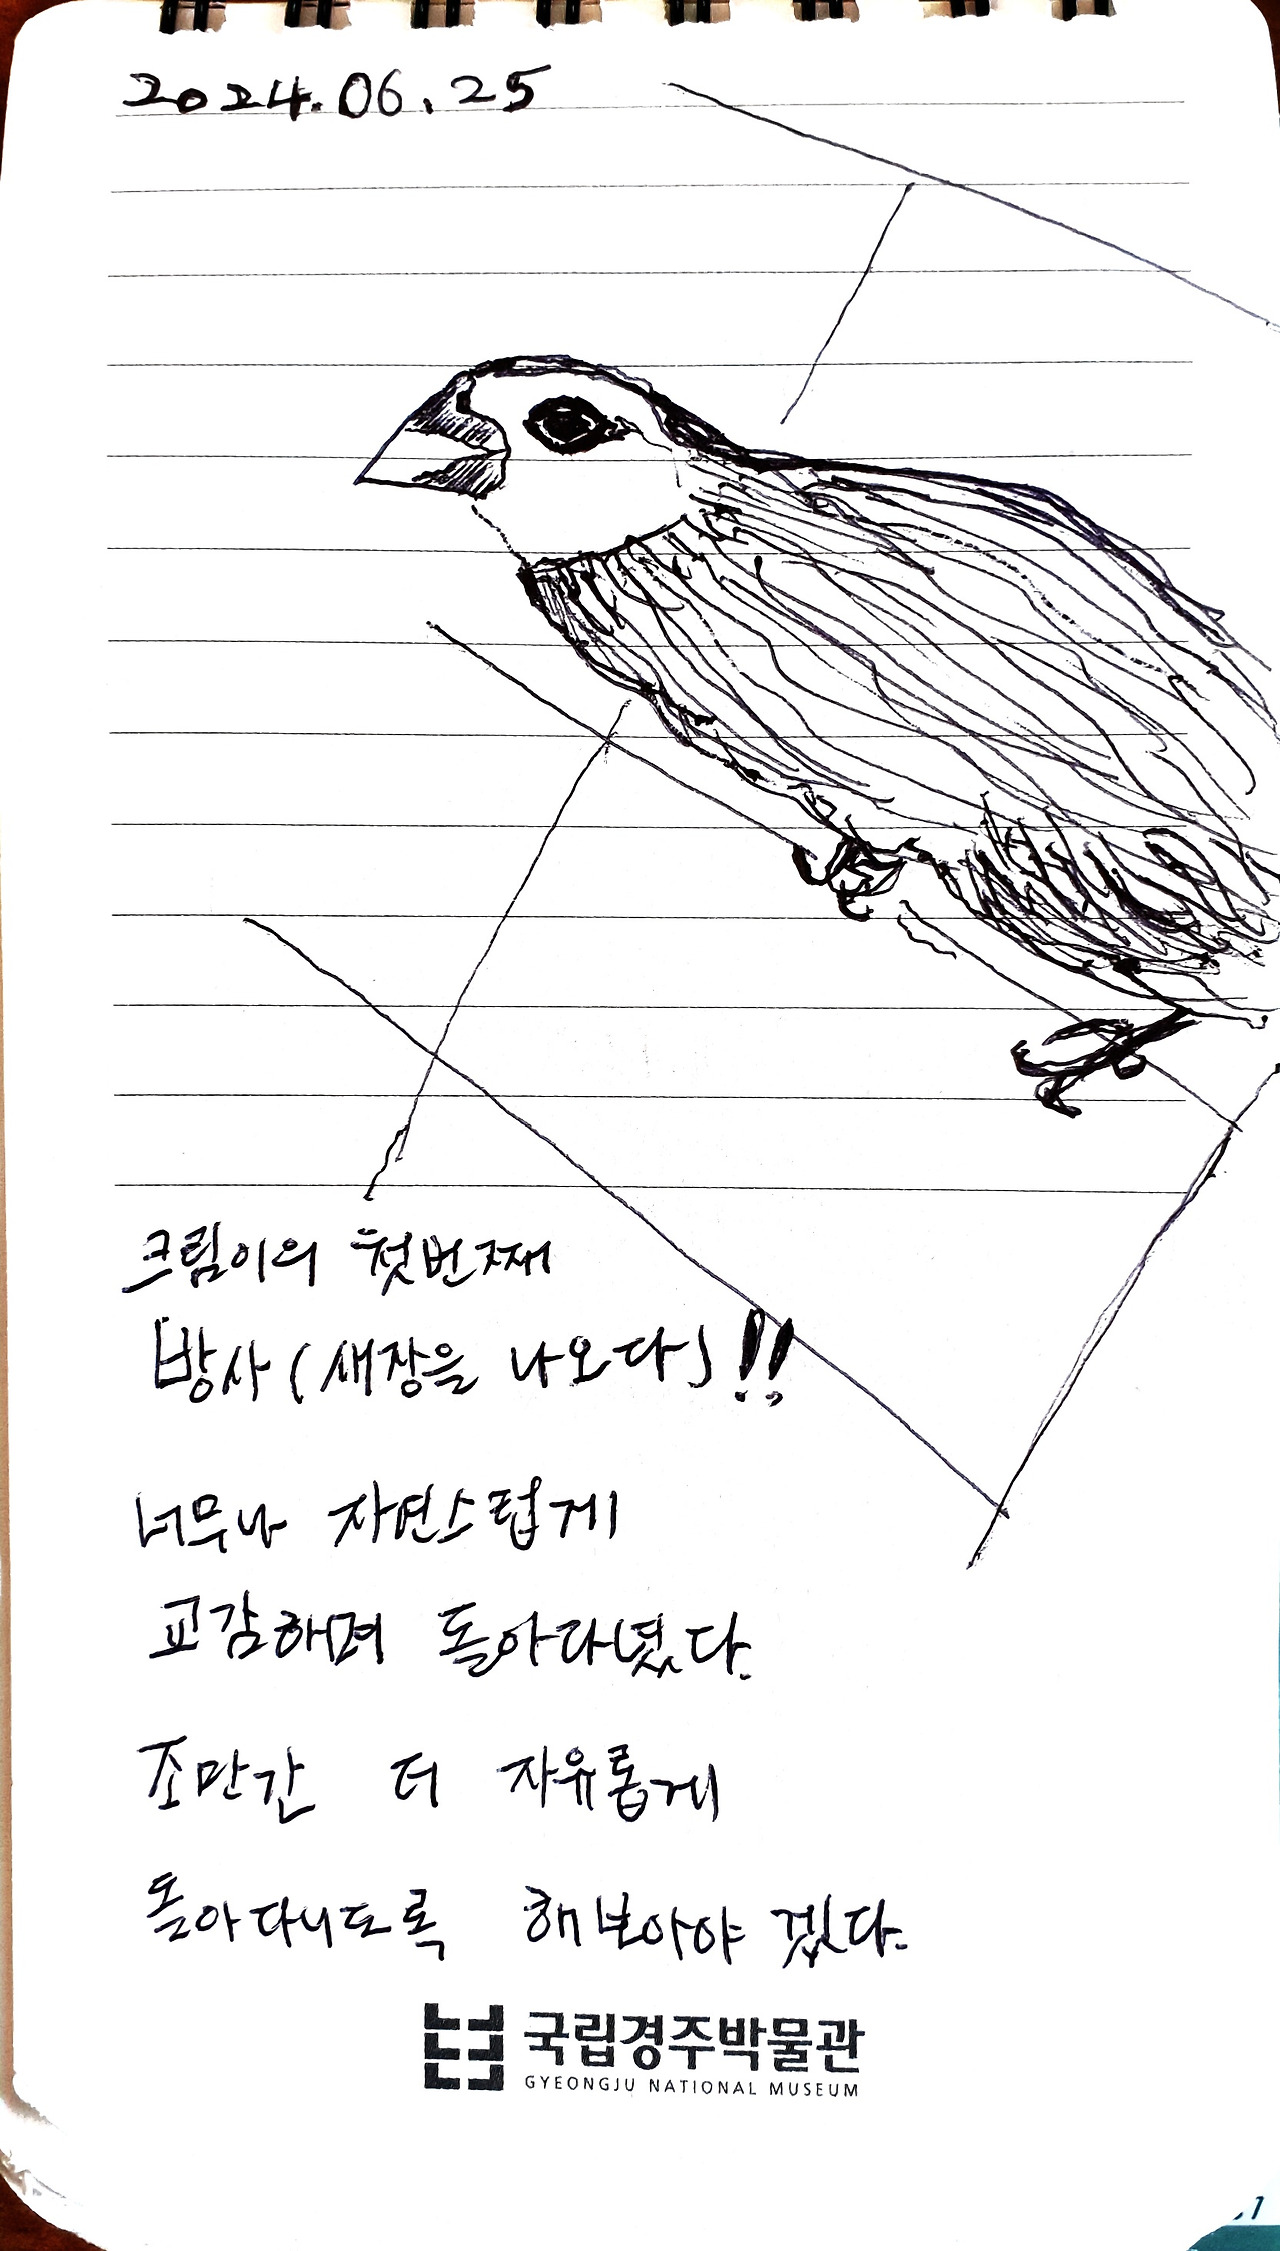 2024.06.25
크림이의 첫번째
방사(새장을 나오다)!!
너무나 자연스럽게
교감하며 돌아다녔다.
조만간 더 자유롭게
돌아다니도록 해보아야 겠다.
국립경주박물관
GYEONGJU NATIONAL MUSEUM